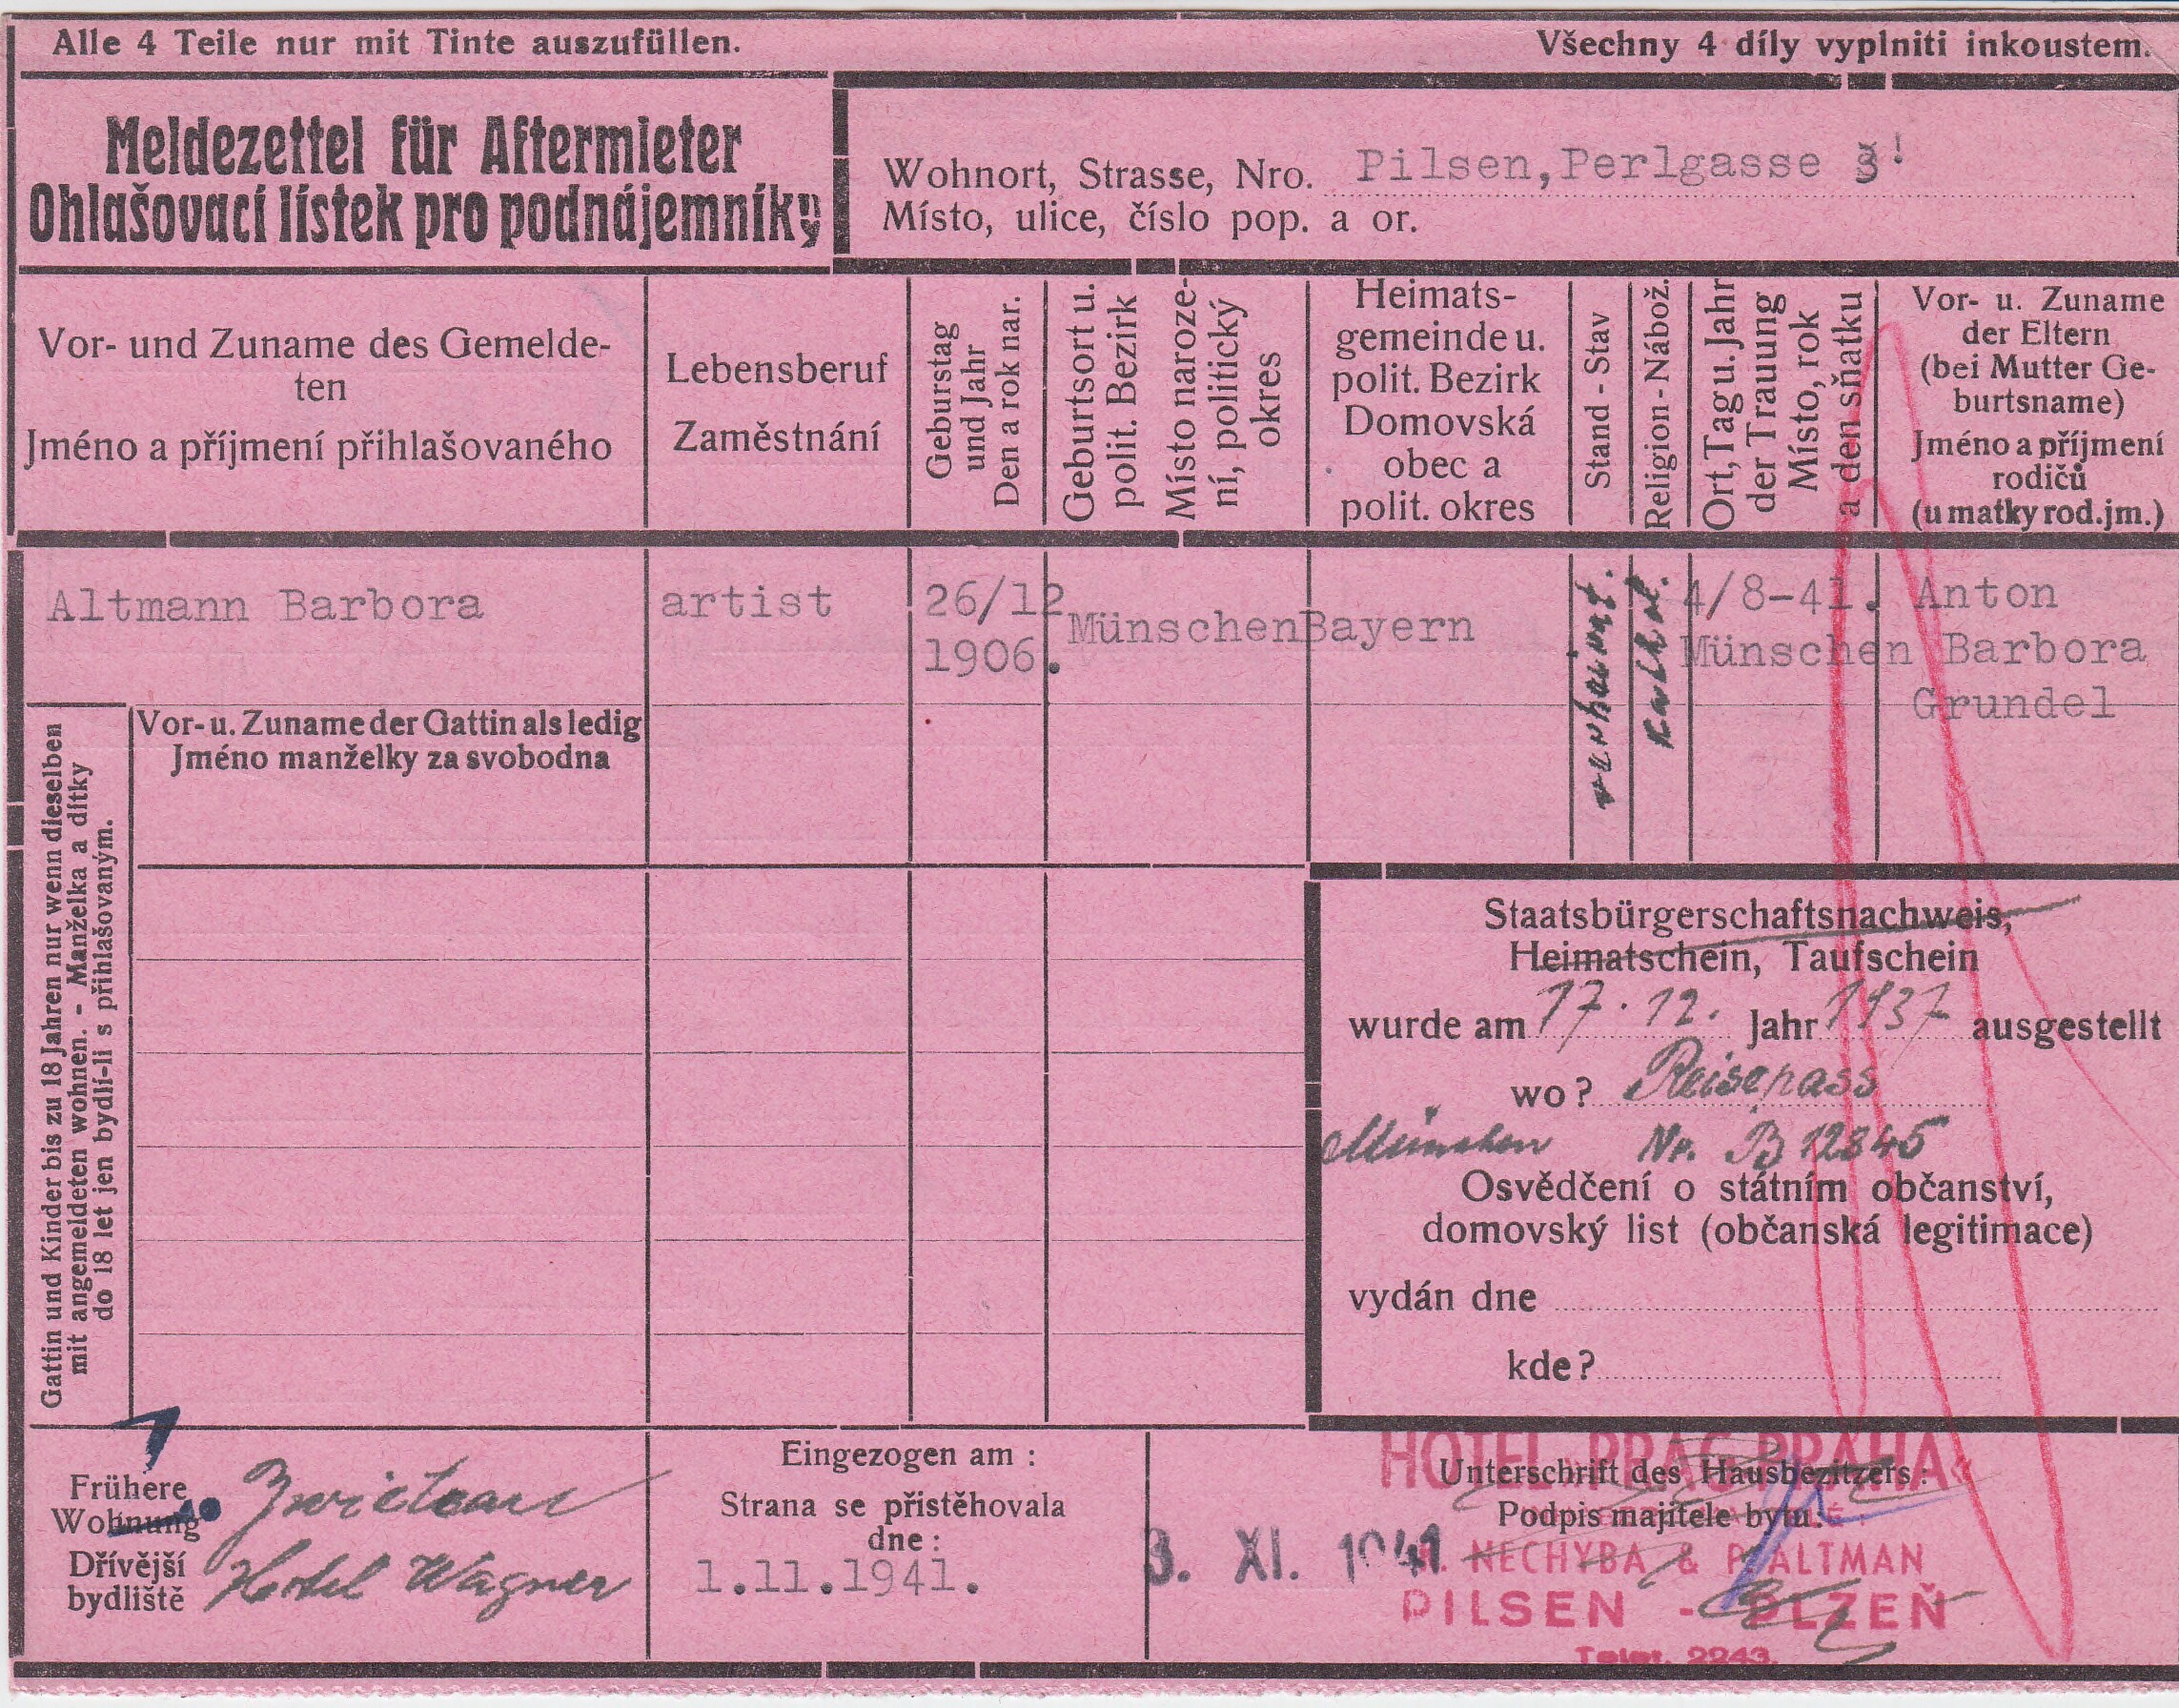 Alle 4 Teile nur mit Tinte auszufüllen.
Všechny 4 díly vyplniti inkoustem.
Meldezettel für Aftermieter
Ohlašovací lístek pro podnájemníky
Wohnort, Strasse, Nro. Pilsen,Perlgasse
Místo, ulice, číslo pop. a or.
Vor- und Zuname des Gemelde-
ten
Jméno a příjmení přihlašovaného
Lebensberuf
Zaměstnání
Geburstag
und Jahr
Den a rok nar.
Geburtsort u.
polit. Bezirk
Místo naroze-
ní, politický
okres
Heimats-
gemeinde u.
polit. Bezirk
Domovská
obec a
polit. okres
Stand - Stav
Religion - Nábož.
Ort, Tag u. Jahr
der Trauung
Místo, rok
a den sňatku
Vor- u. Zuname
der Eltern
(bei Mutter Ge-
burtsname)
Jméno a příjmení
rodičů
(u matky rod. jm.)
Altmann Barbora
artist
26/12
1906.
Münschen
Bayern
verheirat.
kathol.
4/8-41.
Münschen
Anton
Barbora
Grundel
Vor- u. Zuname der Gattin als ledig
Jméno manželky za svobodna
Gattin und Kinder bis zu 18 Jahren nur wenn dieselben
mit angemeldeten wohnen. - Manželka a dítky
do 18 let jen bydlí-li s přihlašovaným.
Staatsbürgerschaftsnachweis,
Heimatschein, Taufschein
wurde am 17. 12. Jahr 1937 ausgestellt
wo? Reisepass
München Nr. B 12845
Osvědčení o státním občanství,
domovský list (občanská legitimace)
vydán dne
kde?
Frühere
Wohnung
Dřívější
bydliště
Hotel Wagner
Eingezogen am :
Strana se přistěhovala
dne :
1.11.1941.
3. XI. 1941
Unterschrift des Hausbezitzers :
Podpis majitele bytu :
HOTEL „PRAG-PRAHA“
NECHYBA & P. ALTMAN
PILSEN - PLZEŇ
Telef. 2243.